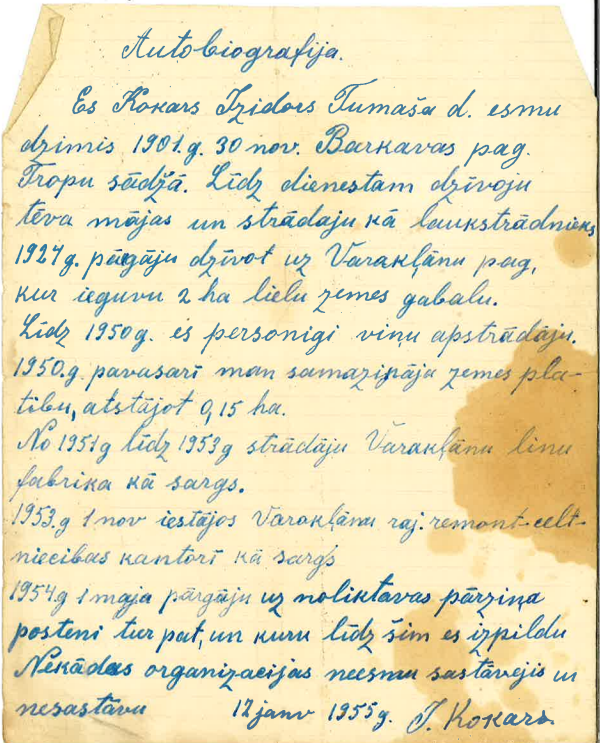 Autobiografija.
Es Kokars Izidors Tumaša d. esmu
dzimis 1901.g. 30 nov. Barkavas pag.
Tropu sādžā. Līdz dienestam dzīvoju
tēva mājas un strādaju kā laukstrādnieks
1924 g. pārgāju dzīvot uz Varakļānu pag,
kur ieguvu 2 ha lielu zemes gabalu.
Līdz 1950 g. es personigi viņu apstrādāju.
1950.g. pavasarī man samaziņāja zemes pla-
tību, atstājot 0,15 ha.
No 1951 g līdz 1953 g strādāju Varakļānu linu
fabrika kā sargs.
1953.g 1 nov iestājos Varakļānu raj. remont-celt-
niecibas kantorī kā sargs
1954 g 1 maja pārgāju uz noliktavas pārziņa
posteni tur pat, un kuru līdz šim es izpildu
Nekādas organizacijas neesmu sastāvejis un
nesastāvu 12 janv 1955 g. I. Kokars